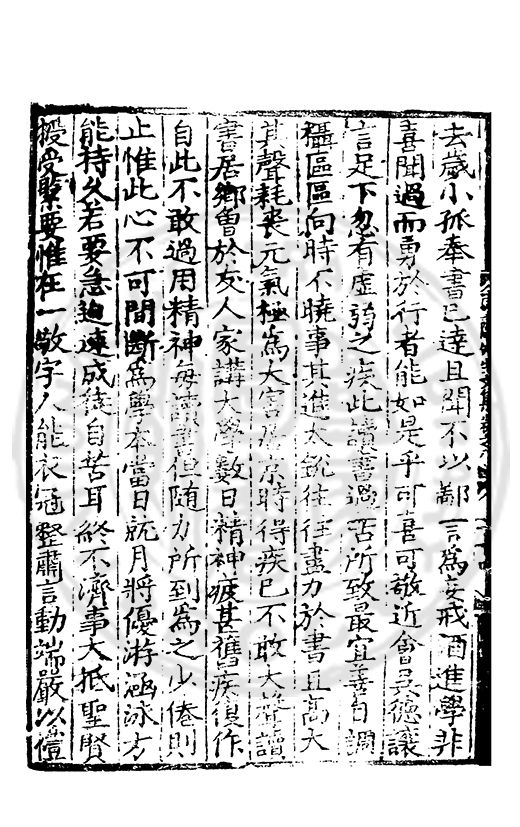 去歲小孤奉書已達且聞不以鄙言為妄戒酒進學非
喜聞過而勇於行者能如是乎可喜可敬近會吳德讓
言足下忽有虛弱之疾此讀書過苦所致最宜善自調
攝區區向時不曉事其進太銳往往盡力於書且高大
其聲耗喪元氣極為大害居京時得疾已不敢大聲讀
書居鄉曾於友人家講大學數日精神疲甚舊疾復作
自此不敢過用精神每讀書但隨力所到為之少倦則
止惟此心不可間斷為學本當日就月將優游涵泳方
能持久若要急迫速成徒自苦耳終不濟事大抵聖賢
授受緊要惟在一敬字人能衣冠整肅言動端嚴以禮